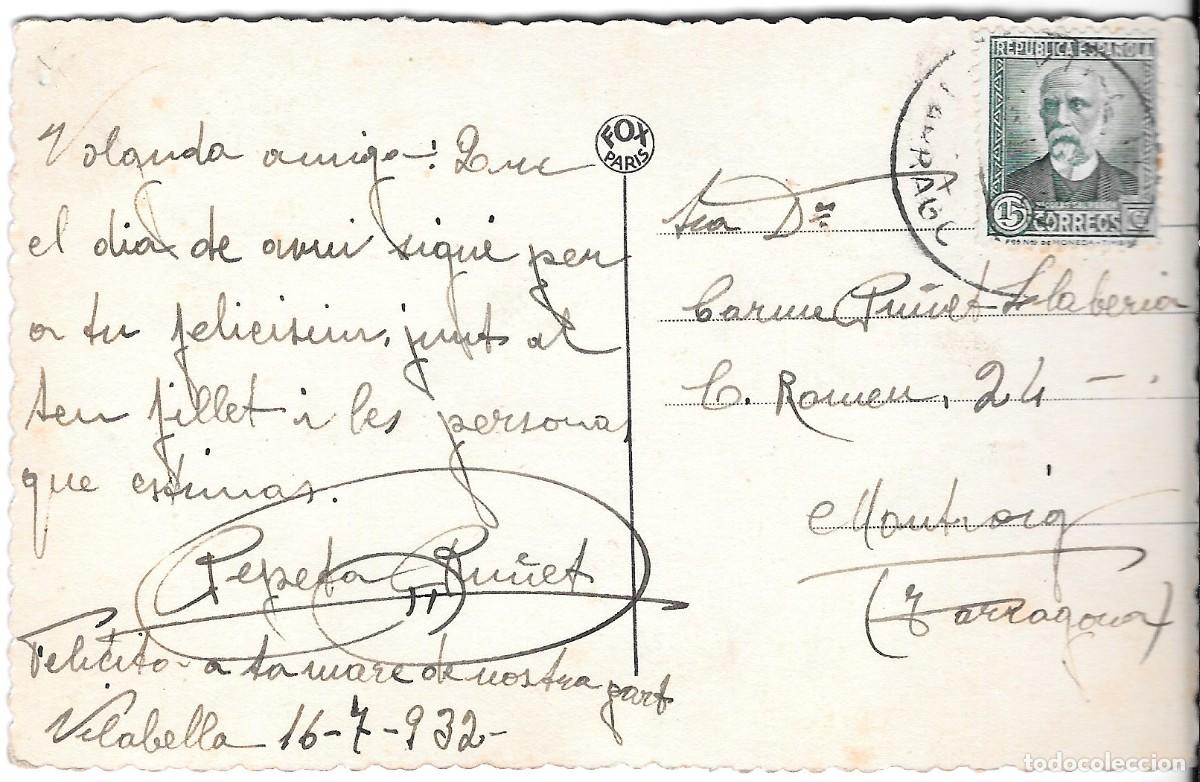 Volguda amiga: Que
el dia de avui sigui per
a tu felicisim, junt al
teu fillet i les persones
que estimas.
Pepeta Puñet
Felicito a ta mare de nostra part
Vilabella 16-7-932-
FOX
PARIS
REPUBLICA ESPAÑOLA
15 CORREOS
Sra Dª
Carme Puñet
C. Romeu, 24 -
Montroig
(Tarragona)
todocoleccion